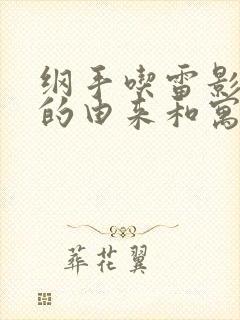 纲手喫雷影
的由来和寓
葬花翼